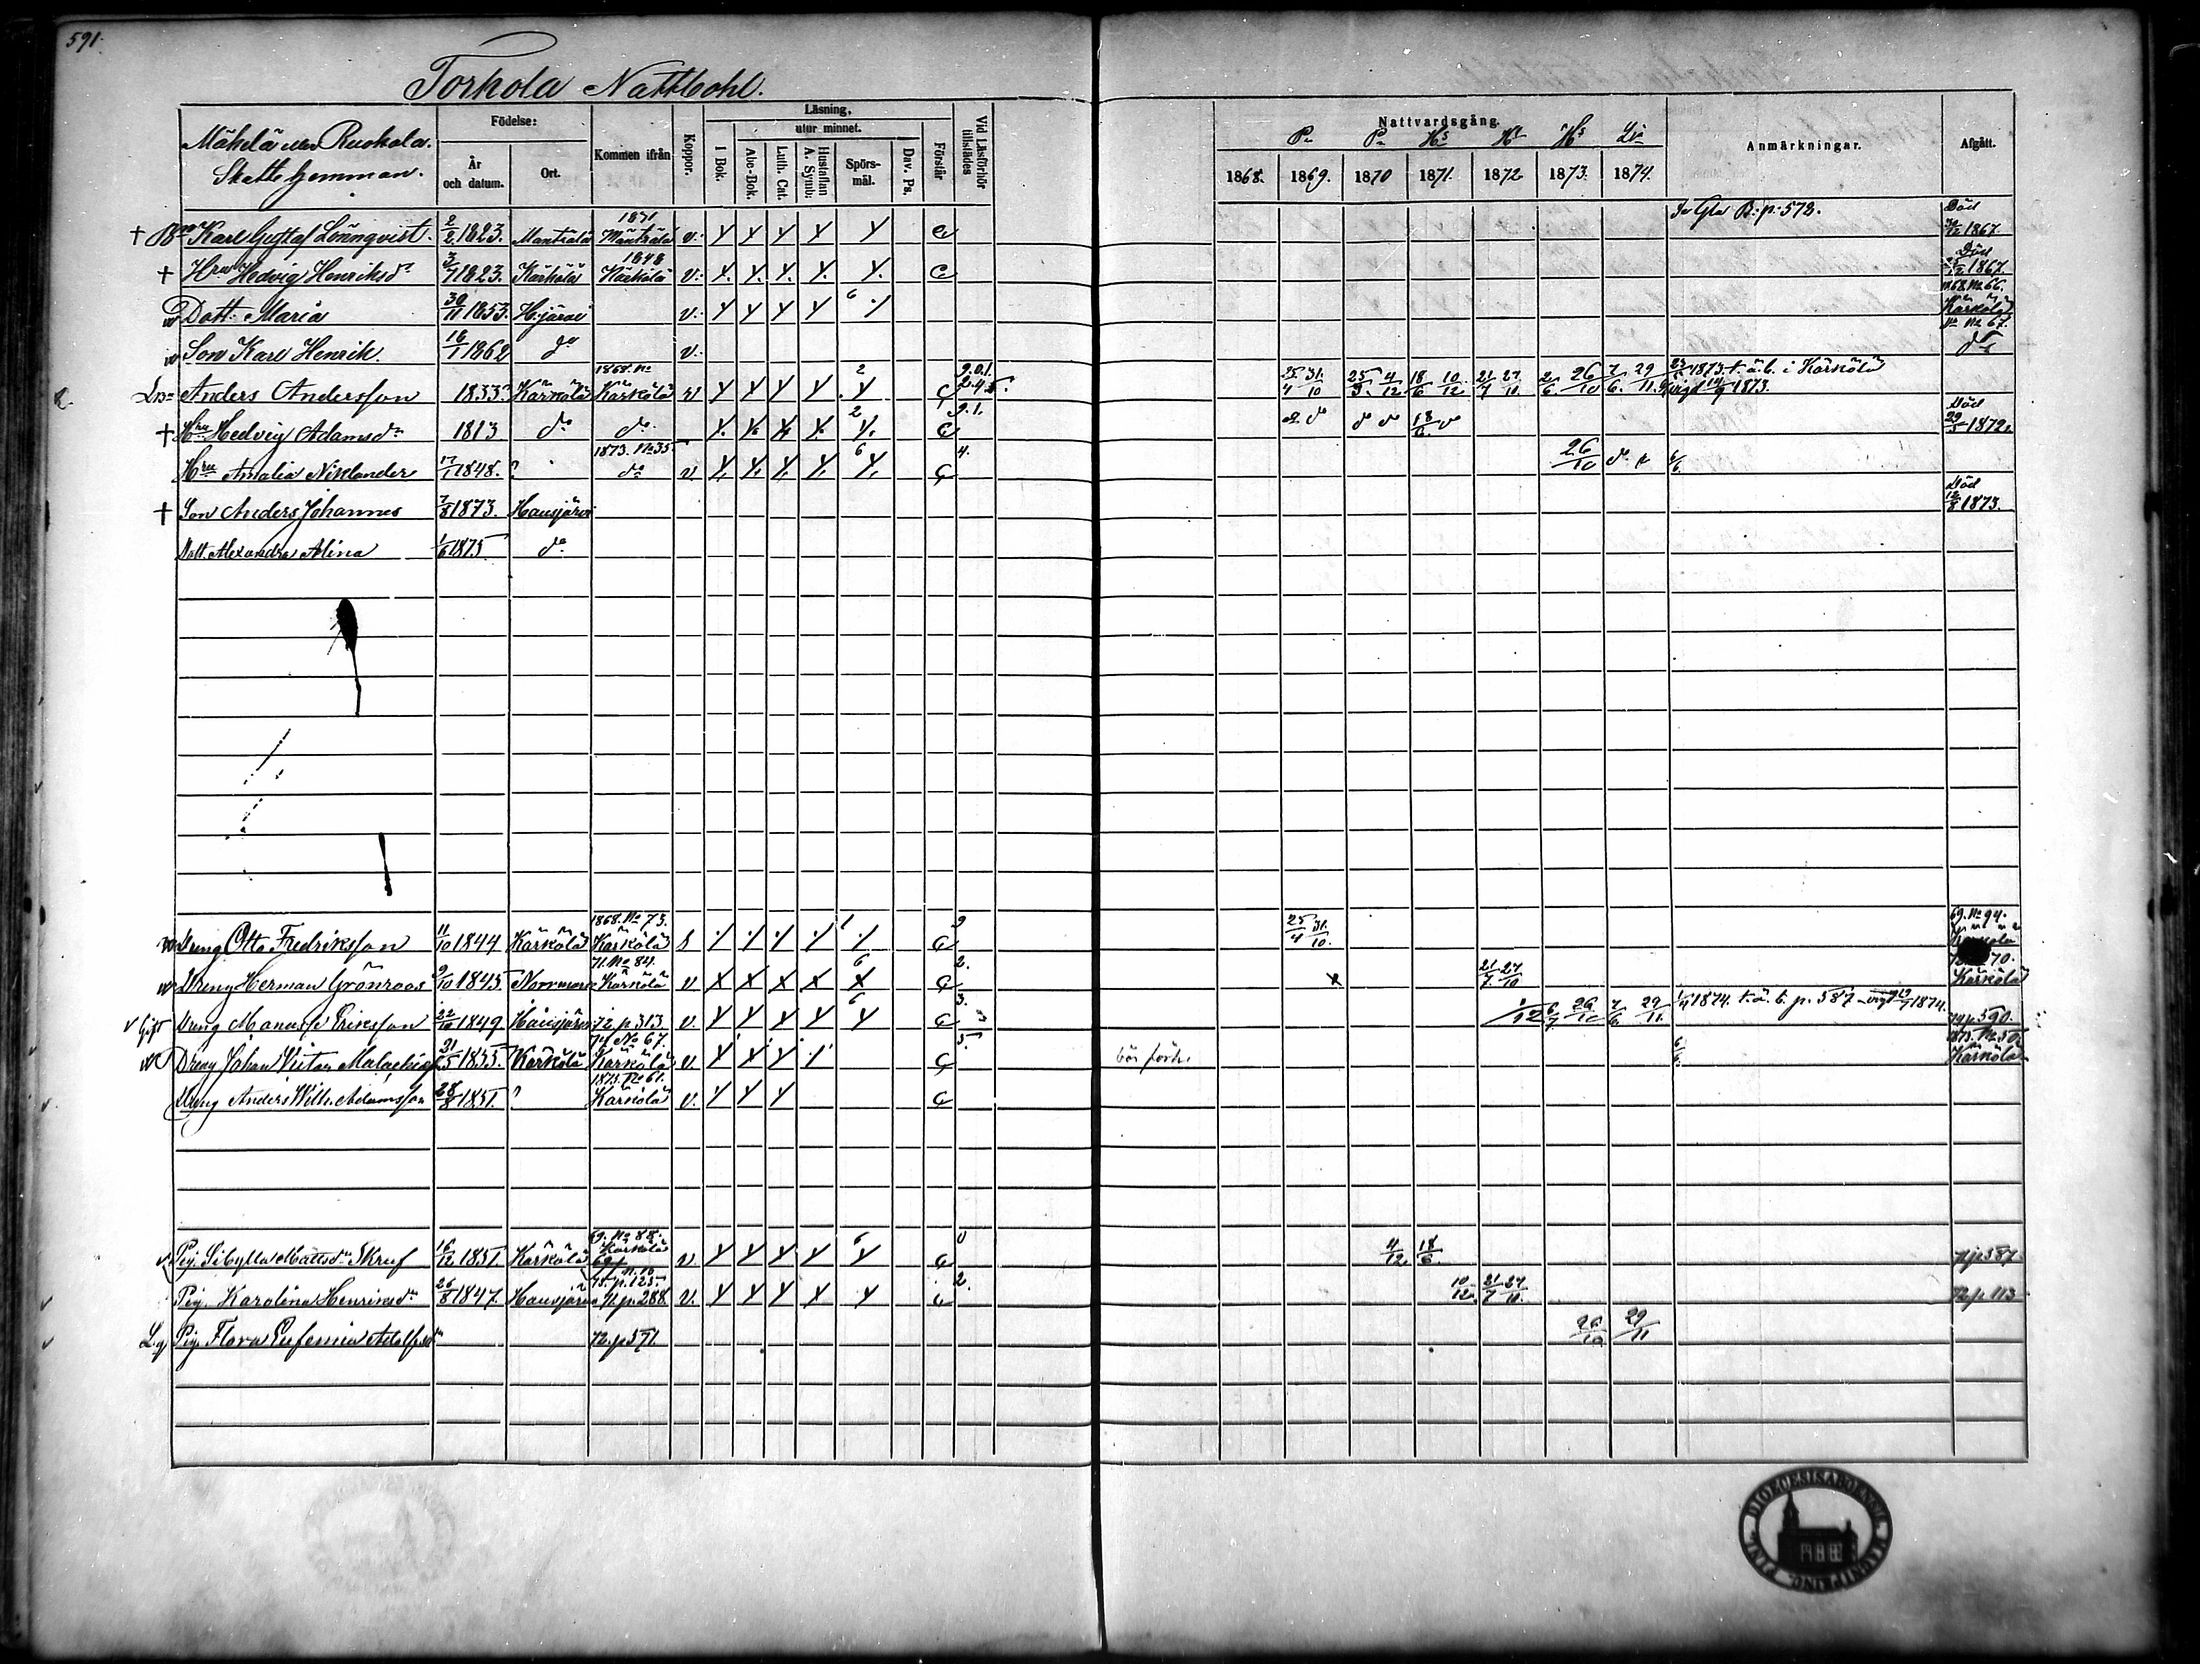 591.
Torhola Nattbohl.
Mäkelä eller Ruokola.
Skatte hemman.
Födelse:
År och datum.
Ort.
Kommen ifrån
Koppor.
Läsning,
utur minnet.
I Bok.
Abc-Bok.
Luth. Cat.
Hustaflan A. Symb:
Spörsmål.
Dav. Ps.
Förstår
Vid Läsförhör tillstädes
Nattvardsgång.
1868. 1869. 1870 1871. 1872 1873. 1874.
Anmärkningar.
Afgått.
† Karl Gustaf Lönnqvist. 2/2 1823. Mäntsälä 1871 Mäntsälä v. C Se Gla B: p. 578. Död 1867.
† Hru Hedvig Henriksdr 3/7 1823. Kärkölä 1848 Kärkölä v. C Död 1867.
Dott. Maria 30/11 1853. H:järvi v. 6 68. No 66. Kärkölä
Son Karl Henrik. 16/1 1862 do v. No 67. do
Anders Andersson 1833. Kärkölä 1868. No Kärkölä v 2 C 25/4 31/10 25/9 4/12 18/6 10/12 21/7 27/10 2/6 26/10 7/6 29/11 1873. t. ä. b. i Kärkölä vigd 1873.
† Hru Hedvig Adamsdr 1813 do do 2 C 9.1. do do do 18/6 Död 29/5 1872.
Hru Amalia Niklander 17/1 1848. ? 1873. No 35 do v. 6 C 4. 26/10 do
† Son Anders Johannes 7/8 1873. Hausjärvi Död 12/8 1873.
Dott. Alexandra Alina 1/6 1875 do
Dreng Otto Fredriksson 11/10 1844 Kärkölä 1868. No 73. Kärkölä S 1 C 2 25/4 31/10. 69. No 94. Kärkölä
Dreng Herman Grönroos 9/10 1845 Nommare 71. No 84. Kärkölä v 6 C 2. 21/7 27/10 70. Kärkölä
v Gift Dreng Manasse Eriksson 22/10 1849. Hausjärvi 72. p. 313. v. 6 C 3. 1/12 6/7 26/10 7/6 29/11. 1874. t. ä. b. p. 587 vigd 1874. p. 590.
Dreng Johan Viktor Malachias 21/5 1855. Kärkölä 74 No 67. Kärkölä v. C 5 bör förh. 1875. No 50 Kärkölä
Dreng Anders Wilh. Adamsson 28/8 1851. ? 1873. No 61. Kärkölä v. C
Pig. Sibylla Mattsdr Skruf 16/12 1851. Kärkölä 69. No 88. Kärkölä v. 6 C 0 4/12 18/6. 71 p 587.
Pig. Karolina Henriksdr 26/8 1847. Hausjärvi p. 125. 71. p. 288. v. C 2. 10/12 21/7 27/10. 72 p 113
Pig. Flora Eufemia Adolfsdr 72. p 571. 26/10 29/11
DIOECESIS ABOENSIS